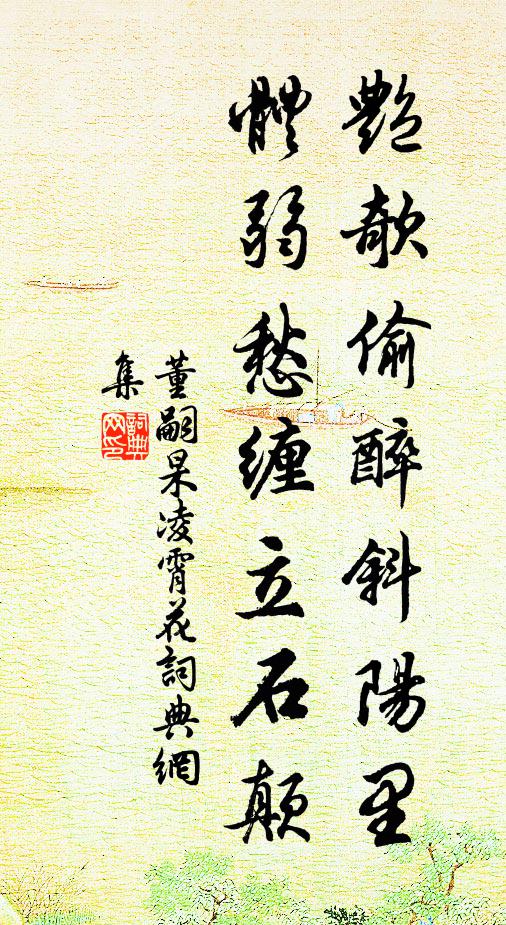 艷欹偷醉斜陽里
體弱愁纏立石顛
董嗣杲凌霄花詞典網
集
詞典
网印